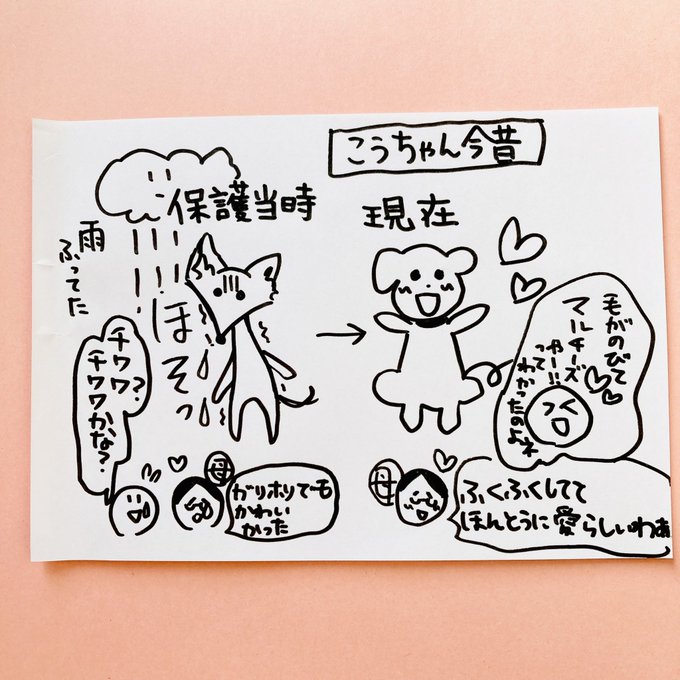 こうちゃん今昔
保護当時
雨
ふってた
ほそっ
チワワ?
チワワかな?
母
ガリホリでも
かわいい
かった
現在
毛がのびて
マルチーズ
やー!!
って
わかったのよネ
母
ふくふくしてて
ほんとうに愛らしいわぁ